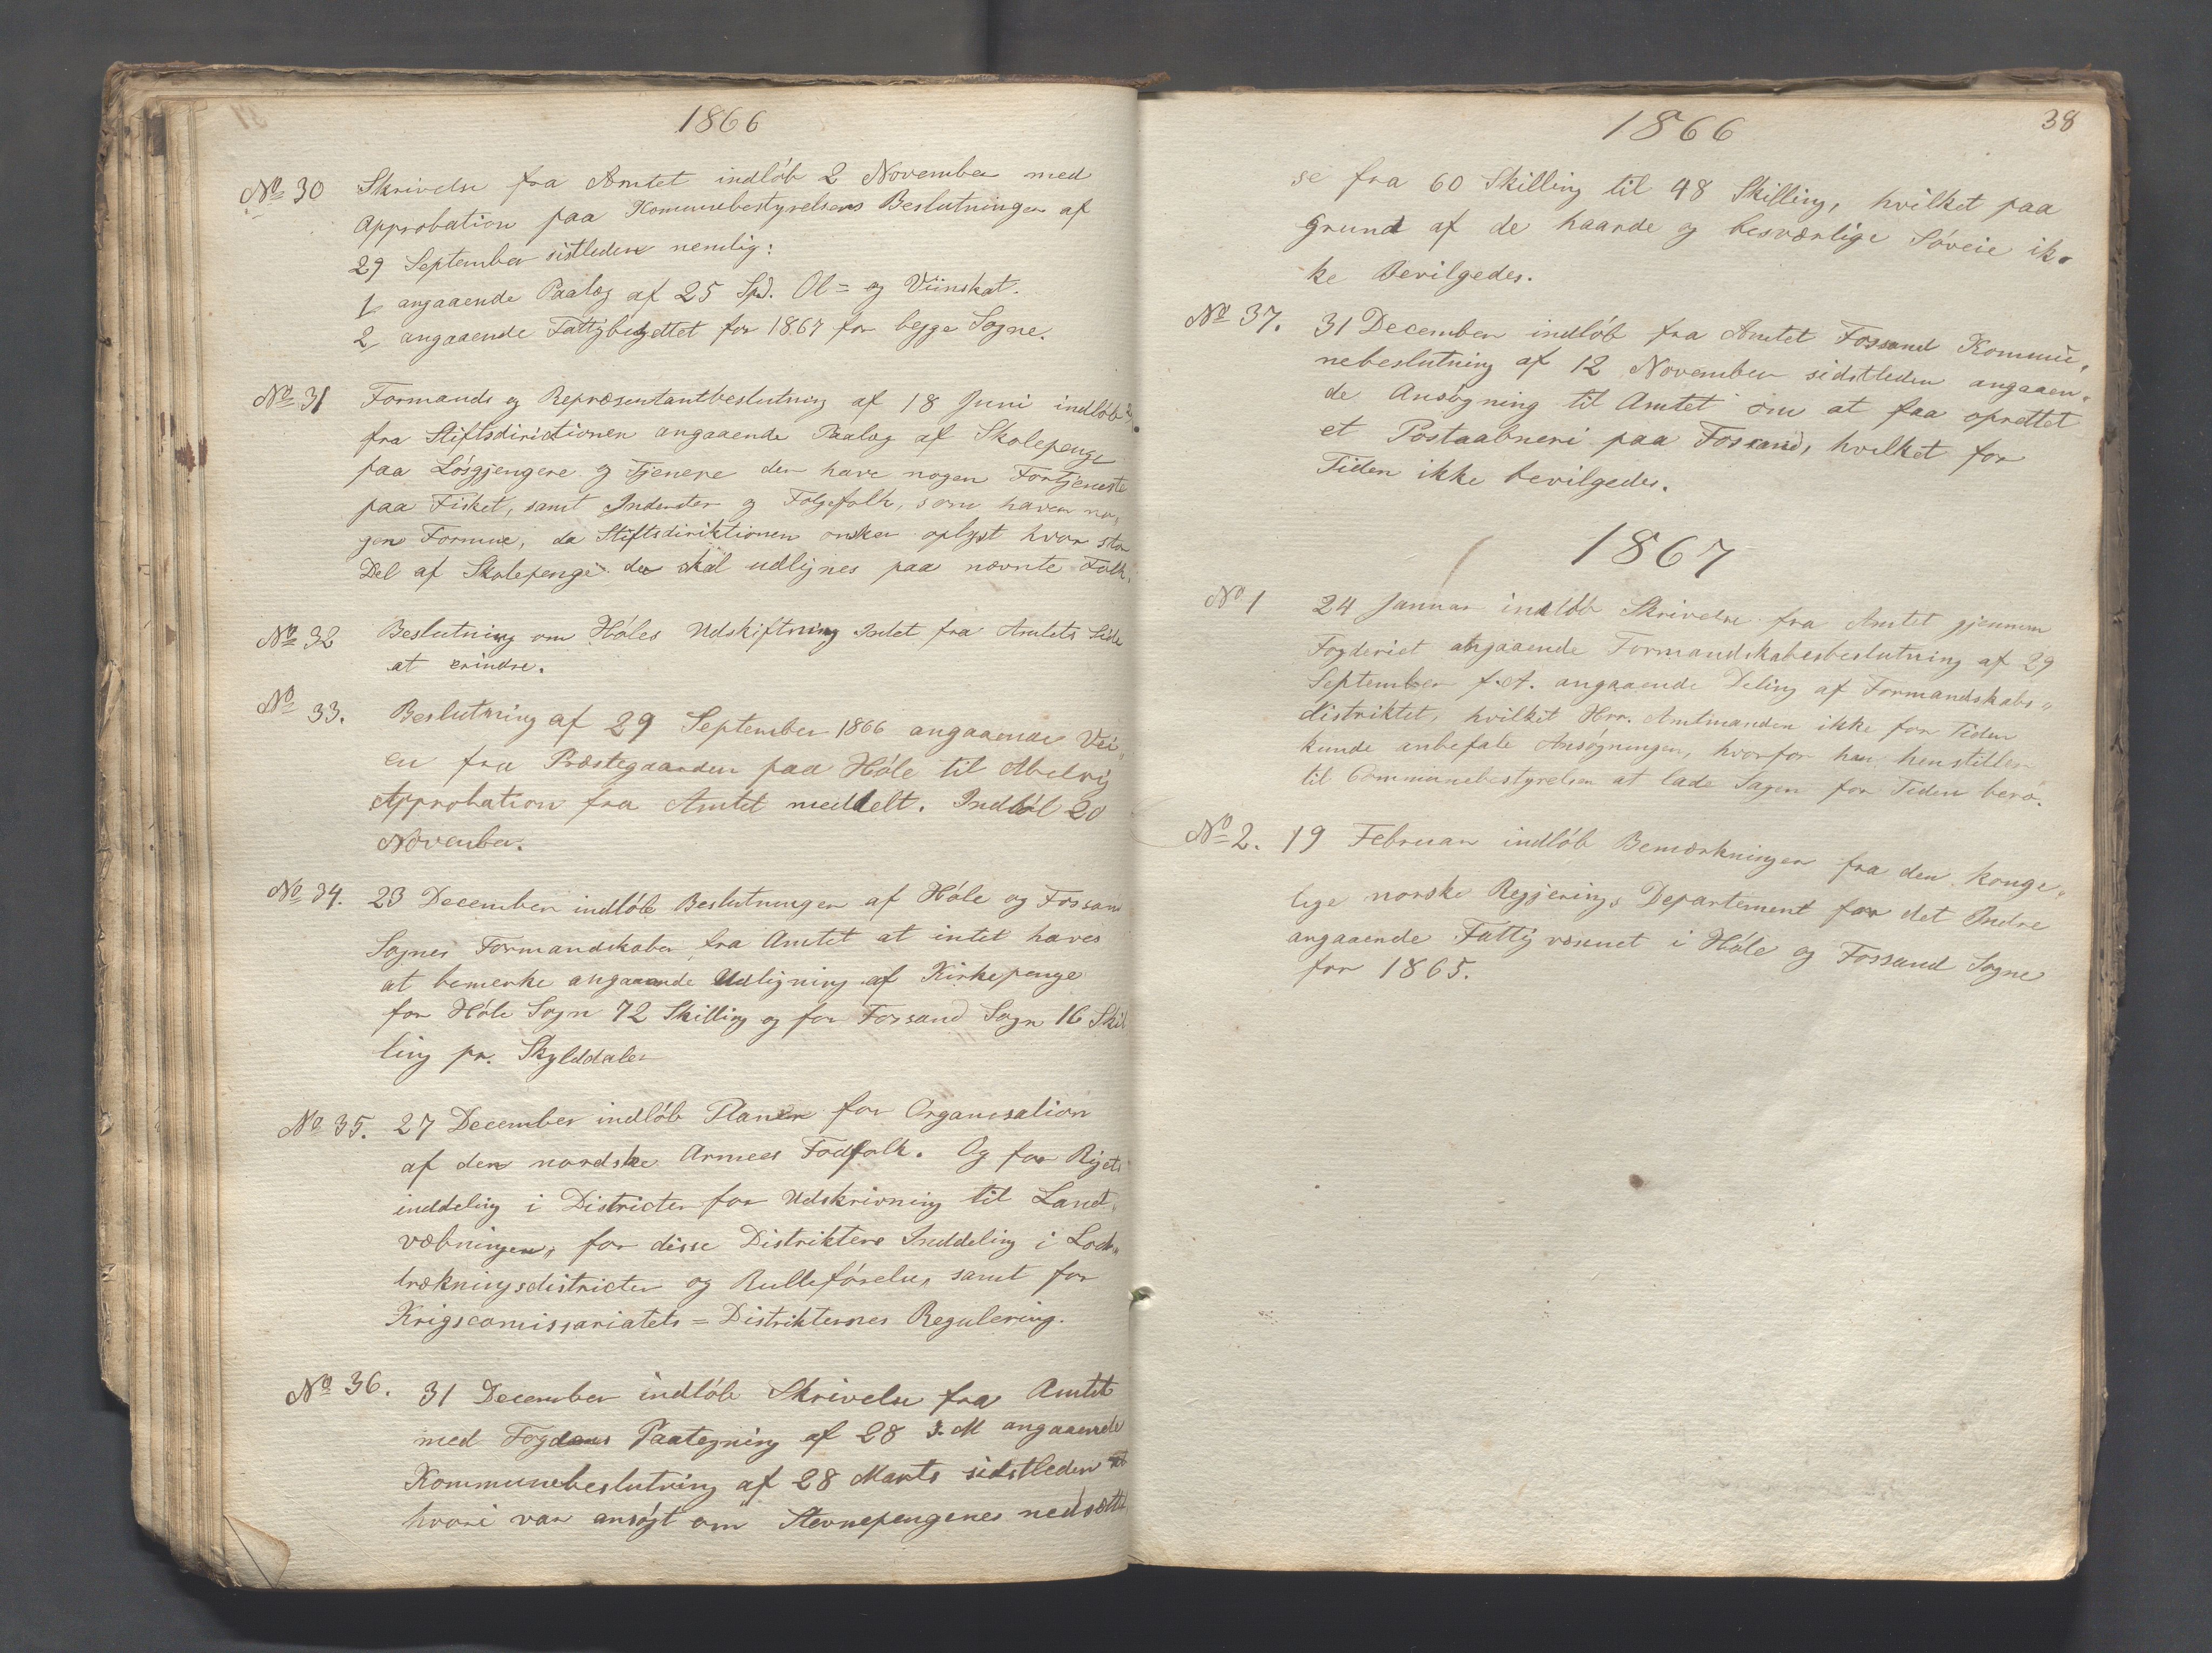 1866
No 30 Skrivelse fra Amtet indløb 2 November med
Approbation paa Kommunebestyrelsens Beslutninger af
29 September sistleden nemlig:
1, angaaende Paalæg af 25 Spd. Øl= og Viinskat.
2, angaaende Fattigbudgettet for 1867 for begge Sogne.
No 31 Formands og Repræsentantbeslutning af 18 Juni indløb
fra Stiftsdirictionen angaaende Paalæg af Skolepenge
paa Løsgjengere og Tjenere der have nogen Fortjeneste
paa Fisket, samt Inderster og Folgefolk, som haver no,
gen Formue, da Stiftsdiriktionen ønsker oplyst hvor stor
Del af Skolepenge der skal udlignes paa nævnte Folk.
No 32 Beslutning om Høles Udskiftning Intet fra Amtets Side
at erindre.
No 33. Beslutning af 29 September 1866 angaaende Vei„
en fra Præstegaarden paa Høle til Abelvig
Approbation fra Amtet meddelt. Indløb 20
November.
No 34. 23 December indløb Beslutninger af Høle og Fossand
Sognes Formandskaber fra Amtet at intet haves
at bemerke angaaende Udligning af Kirkepenge
for Høle Sogn 72 Skilling og for Forsand Sogn 16 Skil
ling pr. Skylddaler
No 35. 27 December indløb Planer for Organisation
af den nordske Armees Fodfolk. Og for Rigets
inddeling i Districter for Udskrivning til Land„
væbningen, for disse Distrikters Inddeling i Lod„
trækningsdistricter og Rulleførelse, samt for
Krigscomissariatets=Distrikternes Regulering.
No 36. 31 December indløb Skrivelse fra Amtet
med Fogdens Paategning af 28 s. M angaaende
Kommunebeslutning af 28 Marts sidstleden
hvori var ansøgt om Stevnepengenes nedsætt
1866
38
se fra 60 Skilling til 48 Skilling, hvilket paa
Grund af de haarde og besværlige Søveie ik„
ke Bevilgedes.
No 37. 31 December indløb fra Amtet Fossand Kommu„
nebeslutning af 12 November sidstleden angaaen„
de Ansøgning til Amtet om at faa oprettet
et Postaabneri paa Fossand, hvilket for
Tiden ikke bevilgedes.
1867
No 1 24 Januar indløb Skrivelse fra Amtet gjennem
Fogderiet angaaende Formandskabesbeslutning af 29
September f.A. angaaende Deling af Formandskabs„
distriktet, hvilket Hrr. Amtmanden ikke for Tiden
kunde anbefale Ansøgningen, hvorfor han henstiller
til Communebestyrelsen at lade Sagen for Tiden bero.
No 2. 19 Februar indløb Bemærkninger fra den konge„
lige norske Regjerings Departement for det Indre
angaaende Fattigvæsnet i Høle og Fossand Sogne
for 1865.